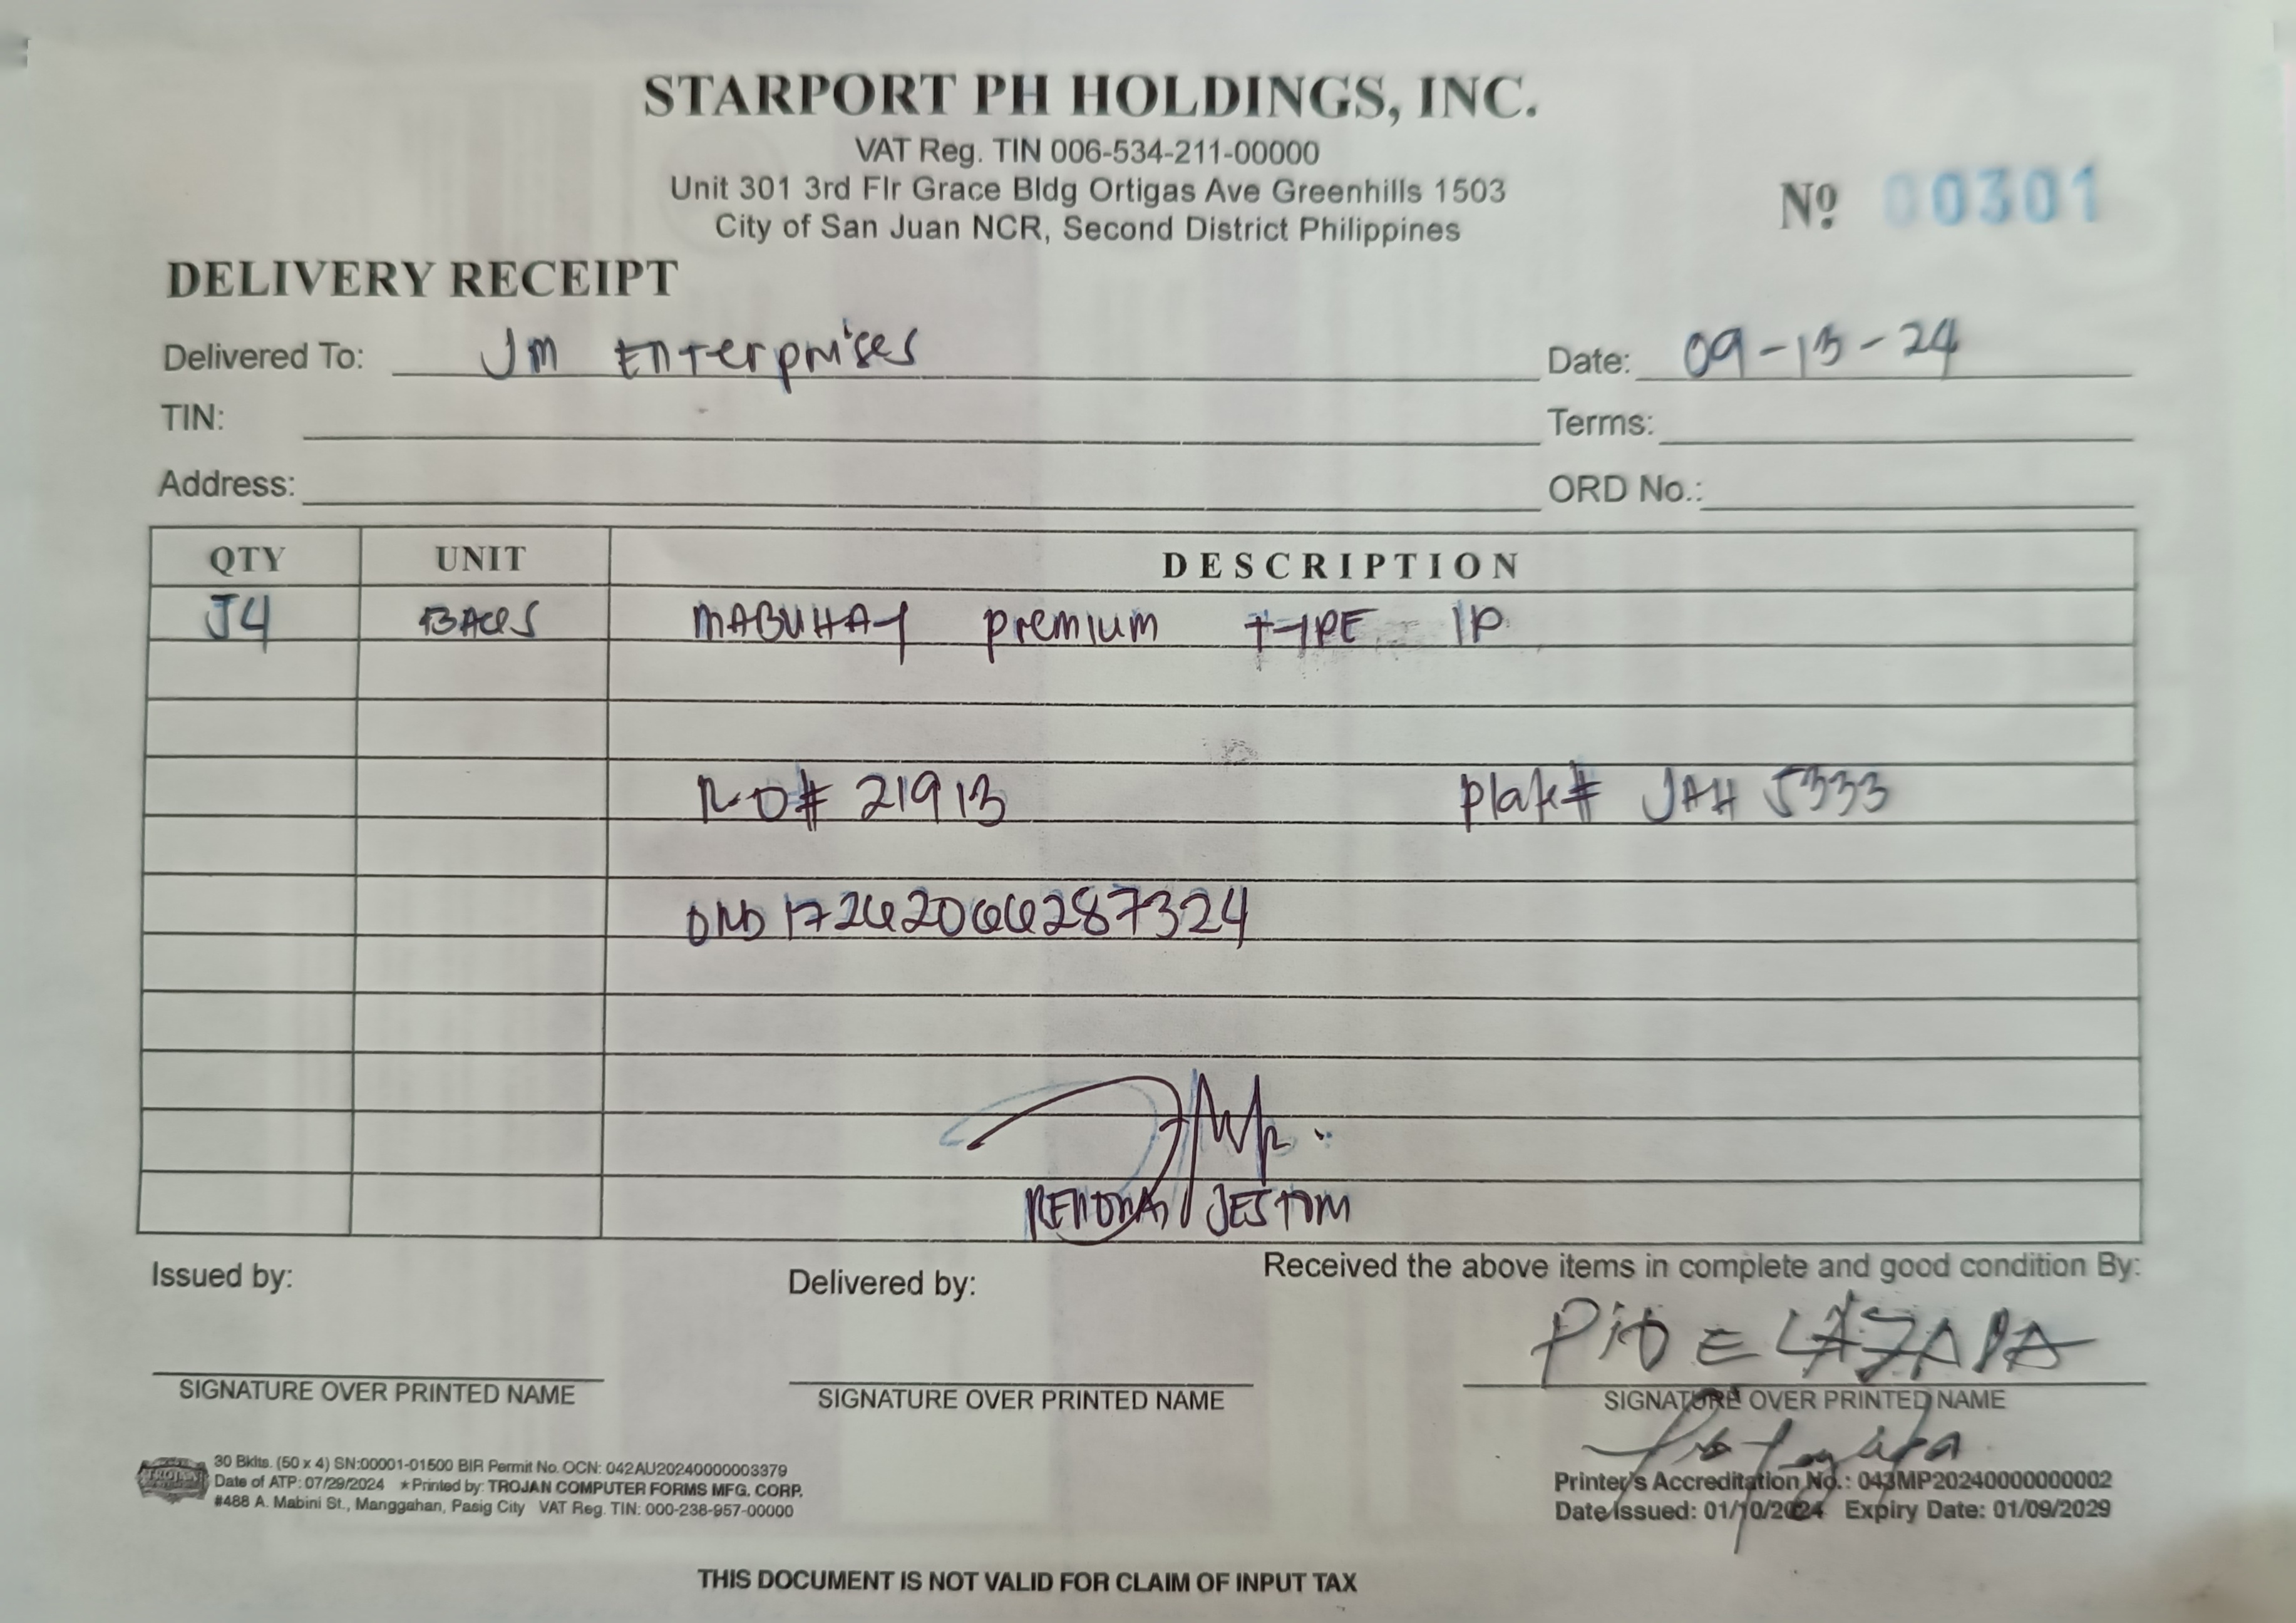 STARPORT PH HOLDINGS, INC.
VAT Reg. TIN 006-534-211-00000
Unit 301 3rd Flr Grace Bldg Ortigas Ave Greenhills 1503
City of San Juan NCR, Second District Philippines
Nº 00301
DELIVERY RECEIPT
Delivered To: JM Enterprises Date: 09-13-24
TIN: Terms:
Address: ORD No.:
QTY UNIT DESCRIPTION
54 BAGS MABUHAY premium TYPE 1P
RO# 21913 plate# JAH 5333
ORD17262066287324
JESTOM
Issued by: Delivered by: Received the above items in complete and good condition By:
PIO E
SIGNATURE OVER PRINTED NAME SIGNATURE OVER PRINTED NAME SIGNATURE OVER PRINTED NAME
TROJAN
30 Bklts. (50 x 4) SN:00001-01500 BIR Permit No. OCN: 042AU20240000003379
Date of ATP: 07/29/2024 ★Printed by: TROJAN COMPUTER FORMS MFG. CORP.
#488 A. Mabini St., Manggahan, Pasig City VAT Reg. TIN: 000-238-957-00000
Printer's Accreditation No.: 043MP20240000000002
Date Issued: 01/10/2024 Expiry Date: 01/09/2029
THIS DOCUMENT IS NOT VALID FOR CLAIM OF INPUT TAX